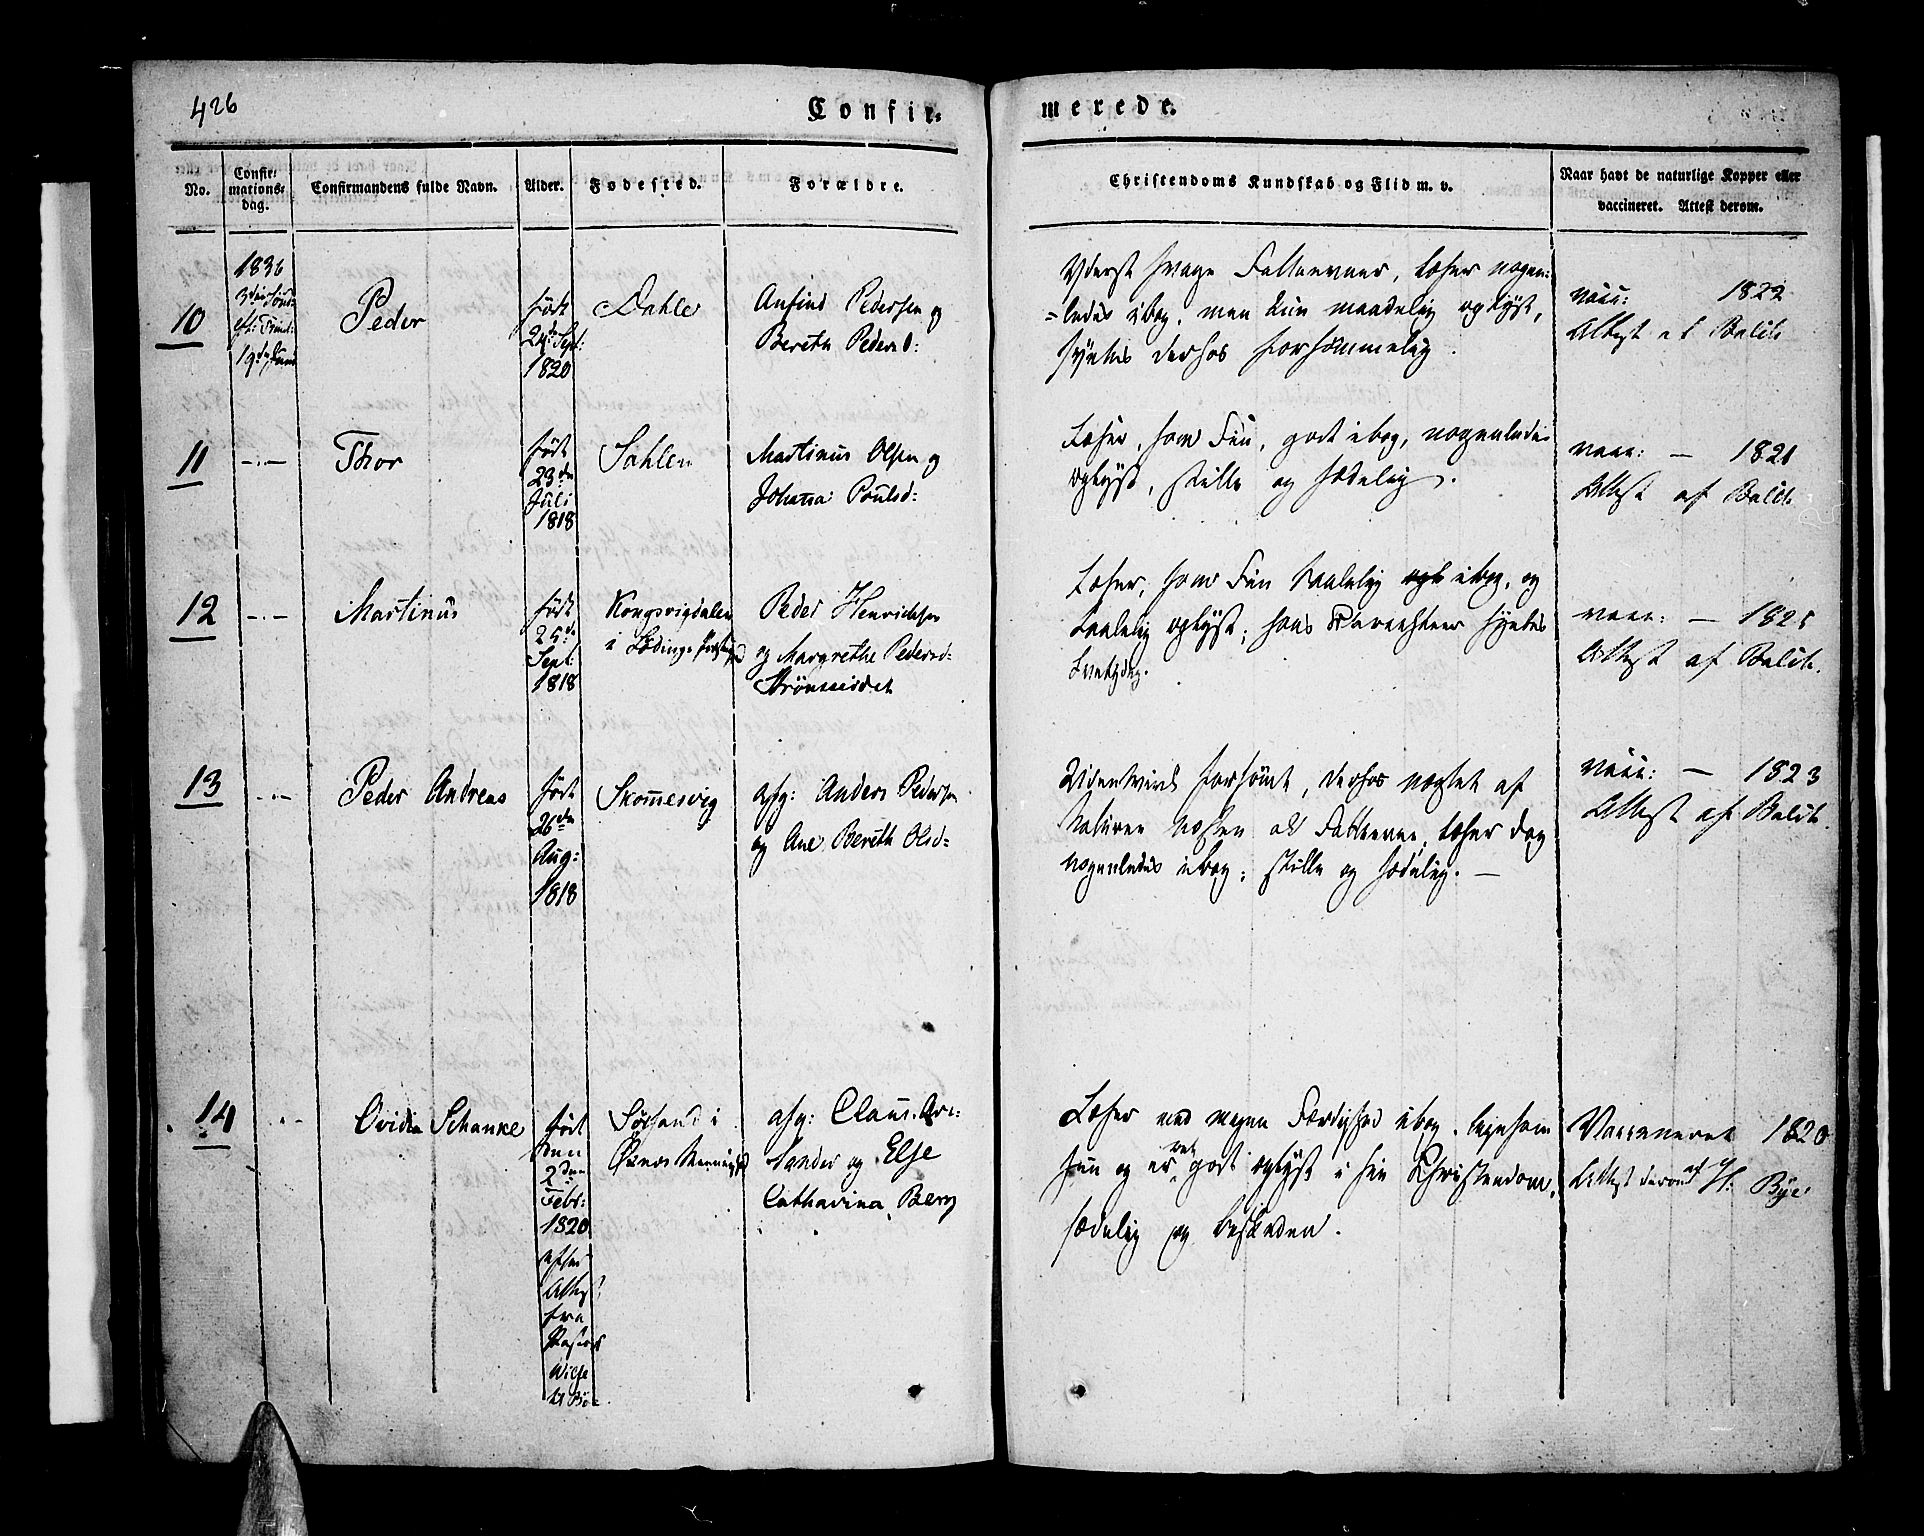 426
Confir-
merede.
No.
Confir-
mations-
dag.
Confirmandens fulde Navn.
Alder.
Fodested.
Forældre.
Christendoms Kundskab og Flid m. v.
Naar havt de naturlige Kopper eller
vaccineret. Attest derom.
10
1836
3die Sønd:
eft: Trinit:
19de Juni
Peder
født
24de Sept:
1820
Dahle
Anfind Pedersen og
Bereth Pedersd:
Yderst svage Fatteevner, læser nogen-
=ledes i bog, men kun maadelig oplyst,
synes derhos forsømmelig.
vacc: 1822
Attest af Balch
11
Thor
født
23de
Juli
1818
Sahlen
Martinus Olsen og
Johanna Poulsd:
Læser, som Fin, godt i bog, nogenledes
oplyst, stille og sædelig.
vacc: — 1821
Attest af Balch
12
Martinus
født
25de
Sept:
1818
Kongsvigdalen
i Lødings
Peder Henrichsen
og Margrethe Pedersd:
Læser, som Fin taalelig i bog, og
taalelig oplyst; hans synes
vacc: — 1825
Attest af Balch.
13
Peder Andreas
født
26de
Aug:
1818
Skommesvig
afg: Anders Pedersen
og Ane Bereth Olsd:
forsømt, derhos nægtet af
Naturen næsten al Fatteevne, læser dog
nogenledes i bog; stille og sædelig. —
vacc: — 1823
Attest af Balch.
14
Ovidia Schanke
født
den
2den
Febr:
1820
efter
Attest
fra
Pastor
Sørsand i
Øxnes
afg: Claus
og Else
Catharina Berg
Læser med megen Færdighed i bog, ligesom
hun og er ret godt oplyst i sin Christendom,
sædelig og beskeden.
Vaccineret 1820
Attest derom af H: Bye